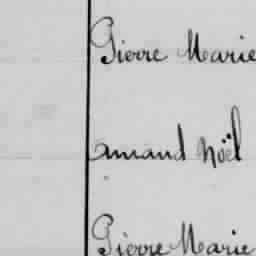 Pierre Marie
Amand Noël
Pierre Marie